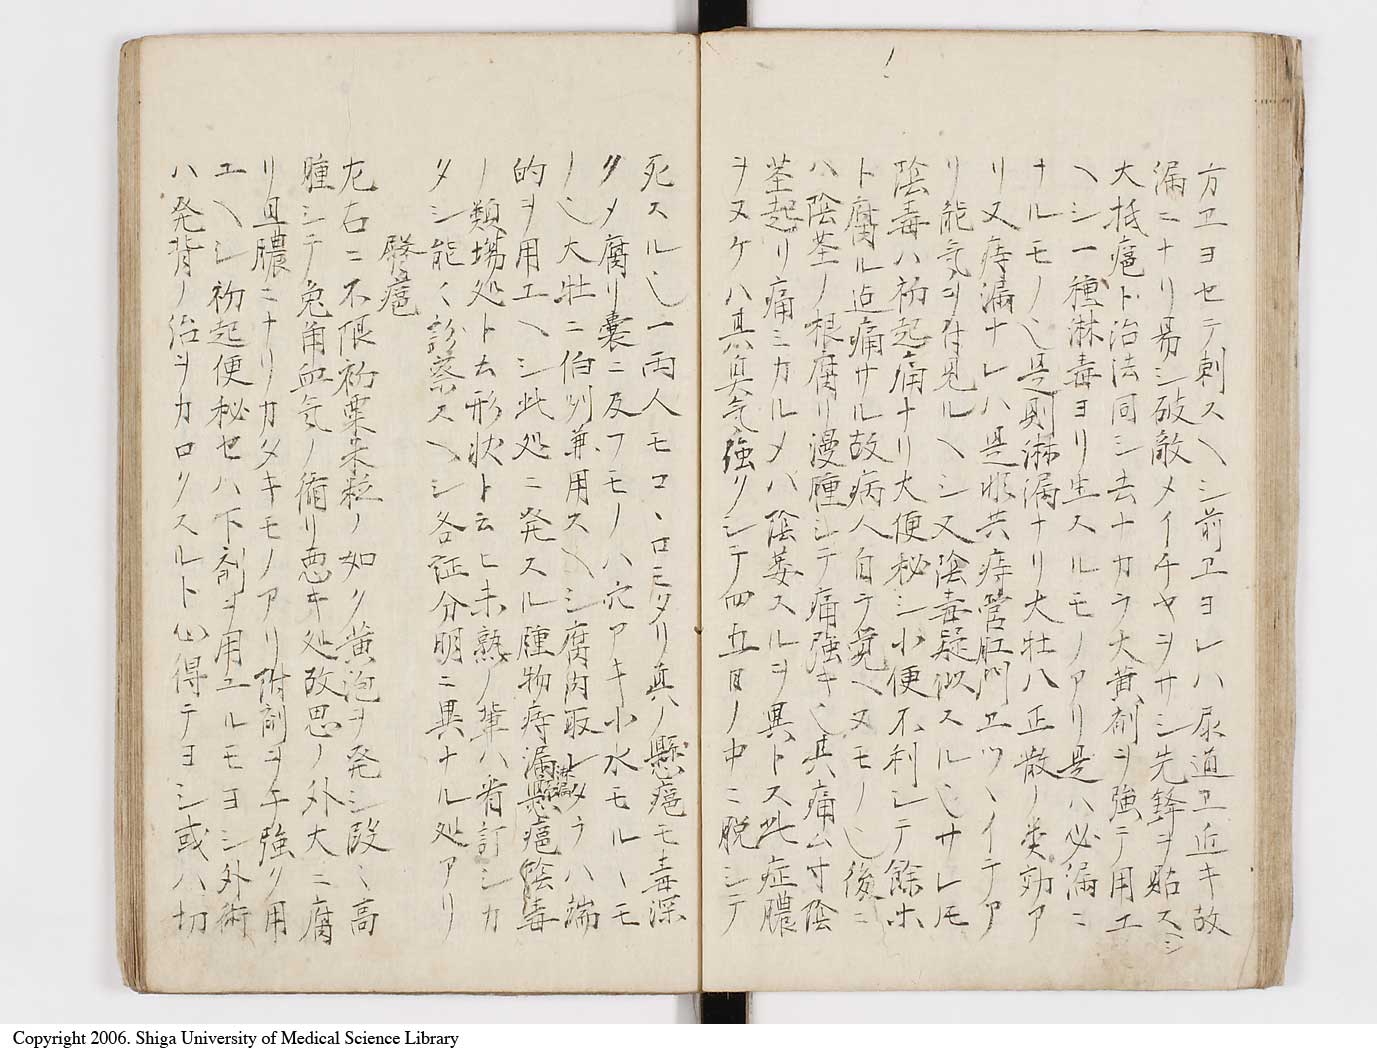 方エヨセテ刺スヘシ前エヨレハ尿道エ近キ故
漏ニナリ易シ破敵メイチヤヲサシ先鋒ヲ貼スヘシ
大抵疤ト治法同シ去ナカラ大黄剤ヲ強テ用エ
ヘシ一種淋毒ヨリ生スルモノアリ是ハ必漏ニ
ナルモノ也是則淋漏ナリ大牡八正散ノ類効ア
リ又痔漏ナレハ是非共痔営肛門エツヽイテア
リ能気ヲ付見ルヘシ又陰毒疑似スル也サレモ
陰毒ハ初起痛ナリ大便秘シ小便不利シテ餘ホ
ト腐ル迠痛サル故病人自ラ覚ヘヌモノ也後ニ
ハ陰茎ノ根腐リ漫腫シテ痛強キ也其痛ム寸陰
茎起リ痛ミカルメハ陰萎スルヲ異トス此症膿
ヲヌケハ真臭気強クシテ四五日ノ中ニ脱シテ
死スル也一両人モコヽロミタリ真ノ懸疤モ毒深
クメ腐リ嚢ニ及フモノハ穴アキ小水モルヽモ
ノ也大牡ニ伯州兼用スヘシ腐肉取レタラハ端
的ヲ用エヘシ此処ニ発スル腫物痔漏淋漏懸疤陰毒
ノ類場処ト云形状ト云ヒ未熟ノ輩ハ肯訂シカ
タシ能く診察スヘシ各証分明ニ異ナル処アリ
髎疤
左右ニ不限初粟米粒ノ如ク黄泡ヲ発シ段々高
腫シテ兎角血気ノ循リ悪キ処故思ノ外大ニ腐
リ且膿ニナリカタキモノアリ附剤ヲ手強ク用
エヘシ初起便秘セハ下剤ヲ用エルモヨシ外術
ハ発背ノ治ヲカロクスルト心得テヨシ或ハ切